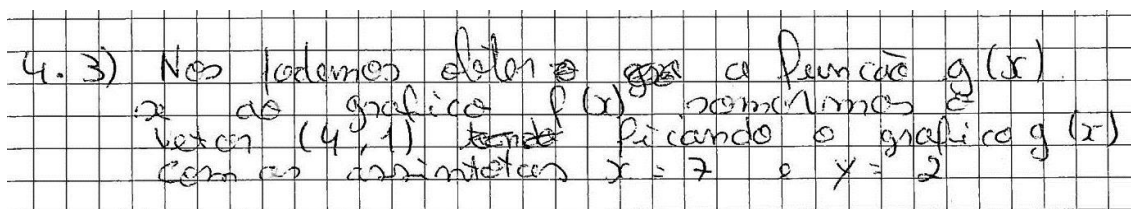 4.3) Nos podemos obter a função g(x)
se ao grafico f(x) somarmos o
vetor (4,1) ficando o grafico g(x)
com as assintotas x = 7 e y = 2